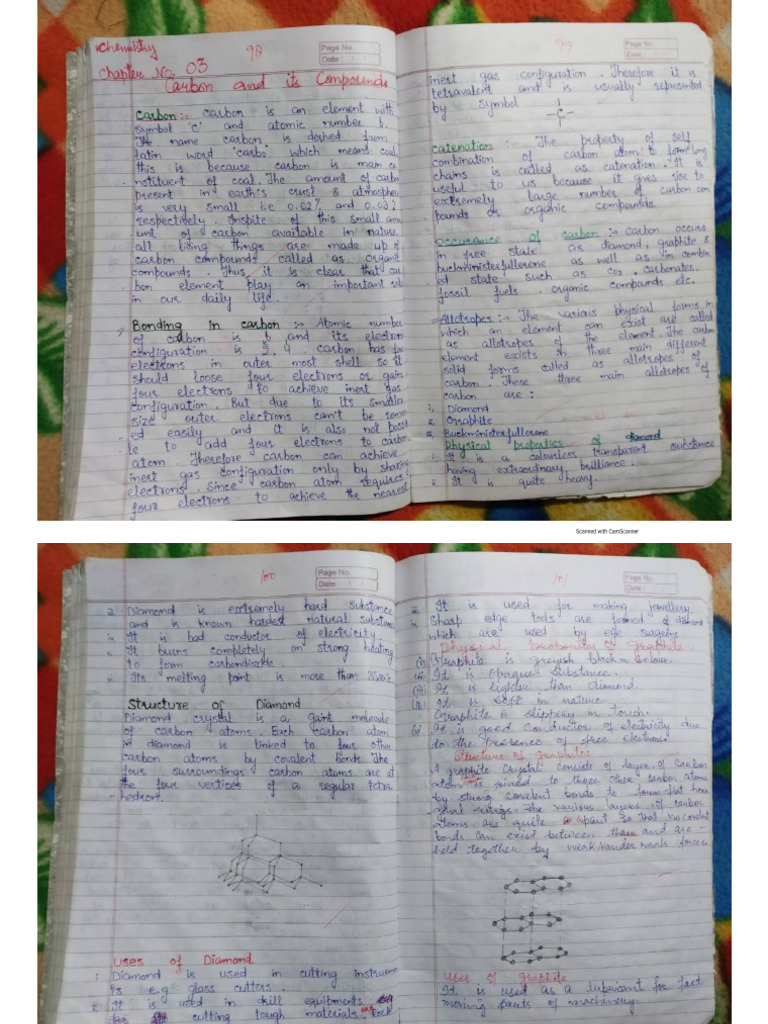 Chemistry
98
Page No.
Date
Chapter No. 03
Carbon and its Compounds
Carbon :- carbon is an element with
symbol 'C' and atomic number 6.
The name carbon is derived from
latin word 'carbo' which means coal
this is because carbon is main co
nstituent of coal. The amount of carbon
present in earth's crust & atmosphere
is very small i.e 0.02% and 0.03%
respectively. Inspite of this small amo
unt of carbon available in nature
all living things are made up of
carbon compounds called as organic
compounds. Thus it is clear that car
bon element play an important role
in our daily life.
Bonding in carbon :- Atomic number
of carbon is 6 and its electron
configuration is 2,4. carbon has four
electrons in outer most shell so it
should loose four electrons or gain
four electrons to achieve inert gas
configuration. But due to its smaller
size outer electrons can't be remov
ed easily and it is also not possib
le to add four electrons to carbon
atom. Therefore carbon can achieve
inert gas configuration only by sharing
electrons. Since carbon atom requires
four electrons to achieve the nearest
99
Page No.
Date
inert gas configuration. Therefore it is
tetravalent and is usually represented
by symbol -C-
catenation :- The property of self
combination of carbon atom to form long
chains is called as catenation. It is
useful to us because it gives rise to
extremely large number of carbon com
pounds or organic compounds.
Occurance of carbon :- carbon occurs
in free state as diamond, graphite &
buckministerfullerene as well as in combin
ed state such as co2, carbonates,
fossil fuels, organic compounds etc.
Allotropes :- The various physical forms in
which an element can exist are called
as allotropes of the element. The carbon
element exists in three main different
solid forms called as allotropes of
carbon. These three main allotropes of
carbon are :
i. Diamond
ii. Graphite
iii. Buckministerfullerene
Physical properties of diamond
i. It is a colourless transparent substance
having extraordinary brilliance.
ii. It is quite heavy.
Scanned with CamScanner
100
Page No.
Date
Diamond is extremely hard substance
and is known hardest natural substan
iv. It is bad conductor of electricity.
v. It burns completely on strong heating
to form carbondioxide.
Its melting point is more than 3500
Structure of Diamond
Diamond crystal is a gaint molecule
of carbon atoms. Each carbon atom
in diamond is linked to four other
carbon atoms by covalent bonds. The
four surroundings carbon atoms are at
the four vertices of a regular tetra
hedron.
Uses of Diamond
i. Diamond is used in cutting instrumen
ts e.g glass cutters.
It is used in drill equibments
cutting tough materials. rock
101
Page No.
Date
iii. It is used for making jewellery.
iv. Sharp edge tools are formed of diamond
which are used by eye surgeons.
Physical Probenties of Graphite
(i) Graphite is greyish black colour.
(ii) It is Opaque Substance.
(iii) It is lighter than diamond.
(iv) It is soft in nature.
Graphite is slippery in touch.
(v) It is good conductor of electricity due
to the presence of free electron.
Structure of graphite:
A graphite crystal consists of layer of Carbon
atom is joined to three other carbon atoms
by strong covalent bonds to form flat hexa
gonal rings. The various layers of carbon
atoms are quite apart so that no covalent
bonds can exist between them and are
held together by weak vander waals forces
Uses of Graphite
It is used as a lubricant for fast
moving parts of machinery.